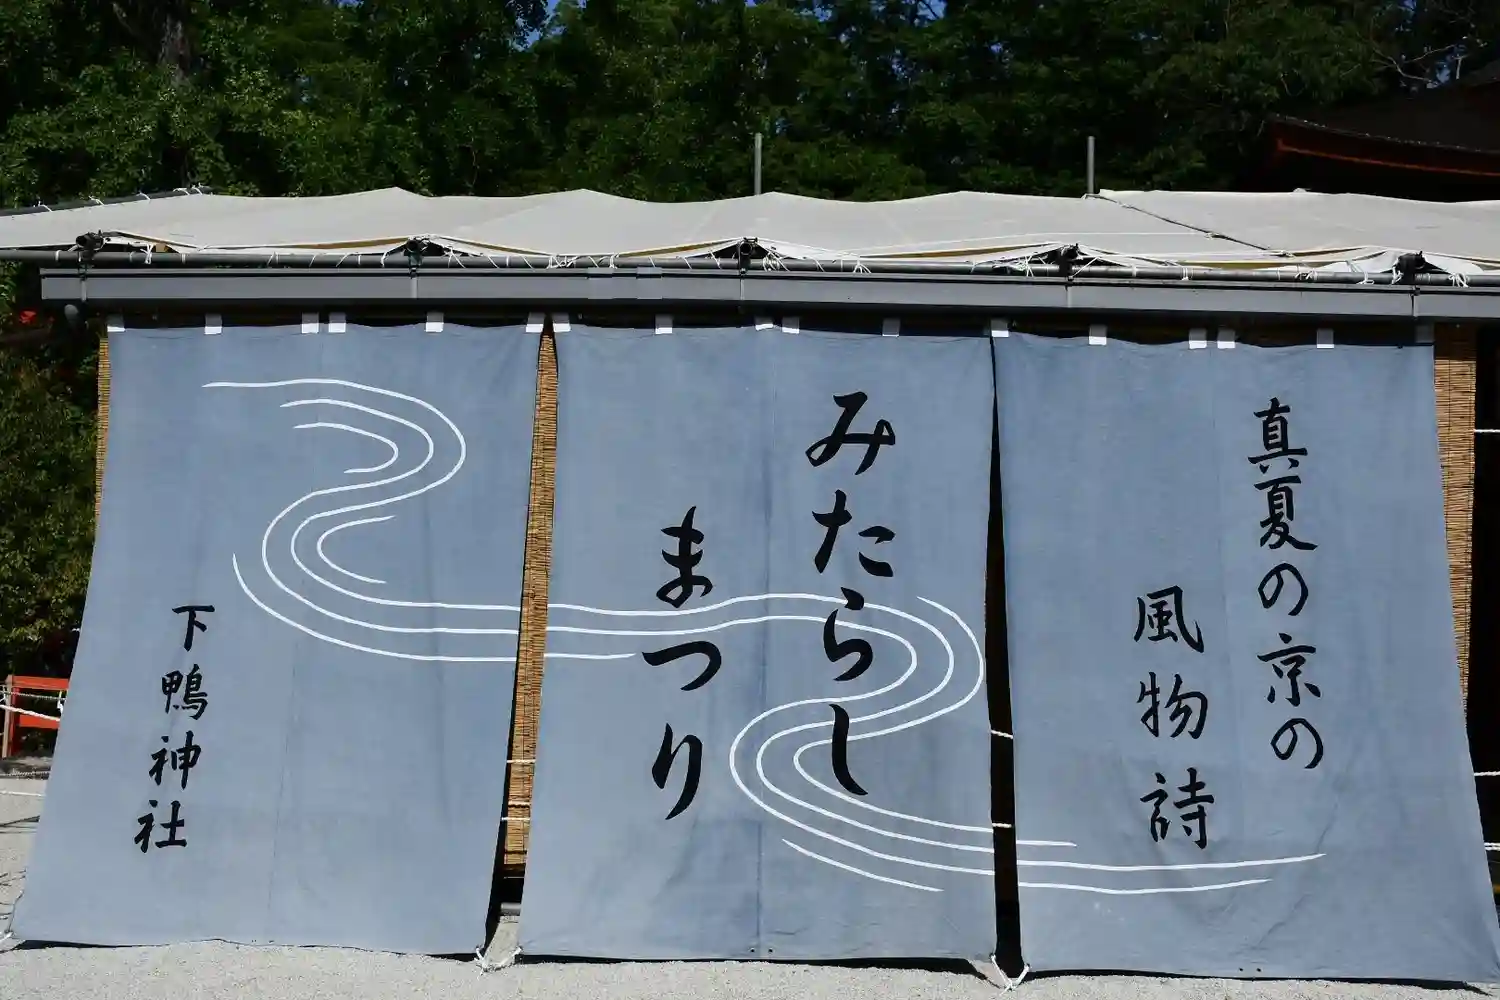 真夏の京の
風物詩
みたらし
まつり
下鴨神社